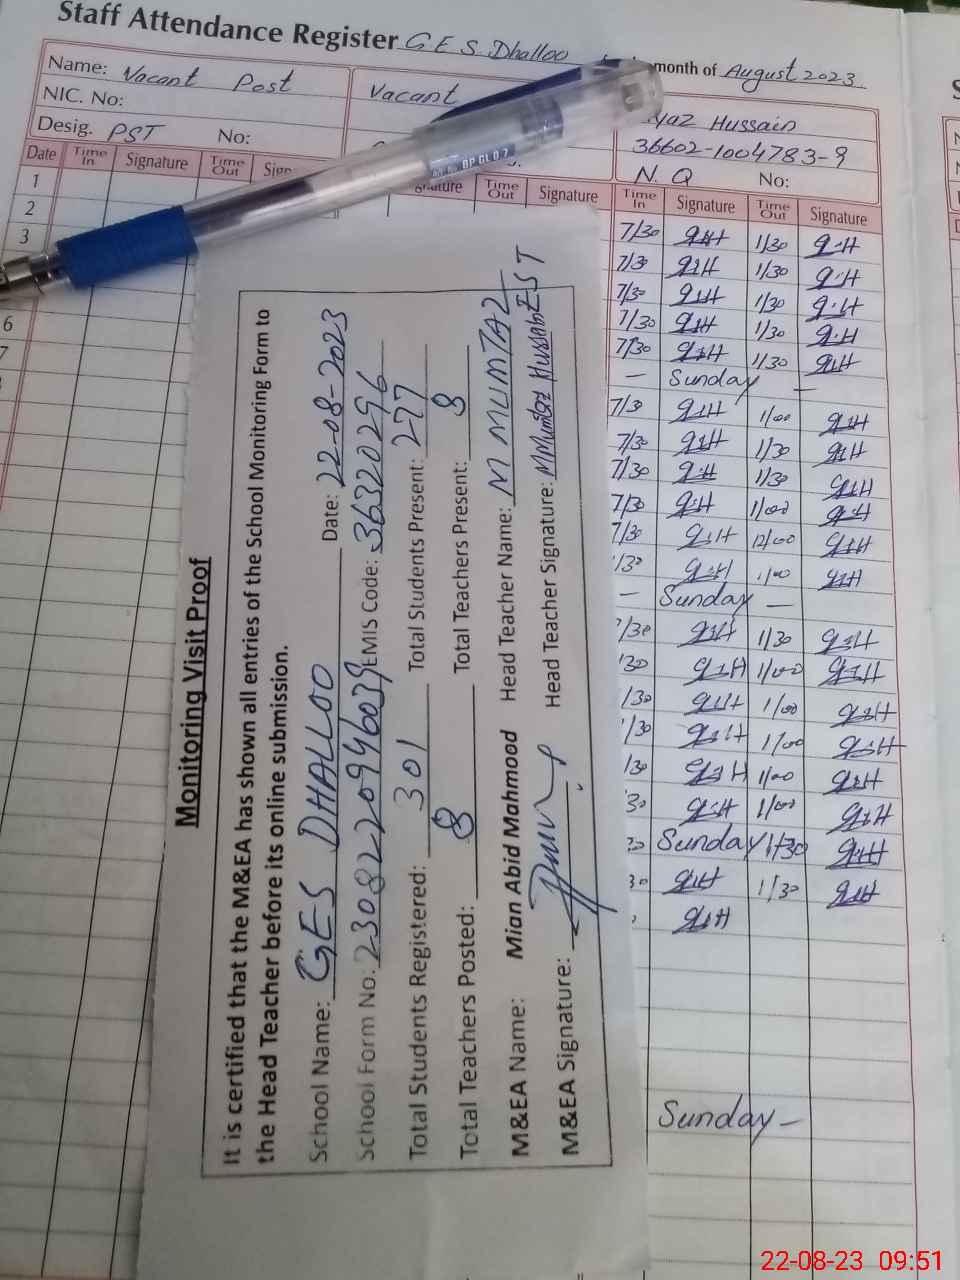 Staff Attendance Register G.E.S. Dhalloo month of August 2023
Name: Vacant Post
NIC. No:
Desig. PST No:
Vacant
Hussain
36602-1004783-9
N.Q No:
Date Time In Signature Time Out
Time Out Signature
Time In Signature Time Out Signature
1
2
3
6
7
7/30 1/30
7/30 1/30
7/30 1/30
7/30 1/30
7/30 1/30
— Sunday —
7/3 1/00
7/30 1/30
7/30 1/30
7/30 1/00
7/30 12/00
/30 1/00
— Sunday —
/30 1/30
/30 1/00
/30 1/00
/30 1/00
/30 1/00
30 1/00
Sunday 1/30
30 1/30
Sunday —
Monitoring Visit Proof
It is certified that the M&EA has shown all entries of the School Monitoring Form to
the Head Teacher before its online submission.
School Name: GES DHALLOO Date: 22-08-2023
School Form No: 2308220946039 EMIS Code: 36320296
Total Students Registered: 301 Total Students Present: 277
Total Teachers Posted: 8 Total Teachers Present: 8
M&EA Name: Mian Abid Mahmood Head Teacher Name: M MUMTAZ
M&EA Signature: Head Teacher Signature: MMumtaz Hussain EST
22-08-23 09:51